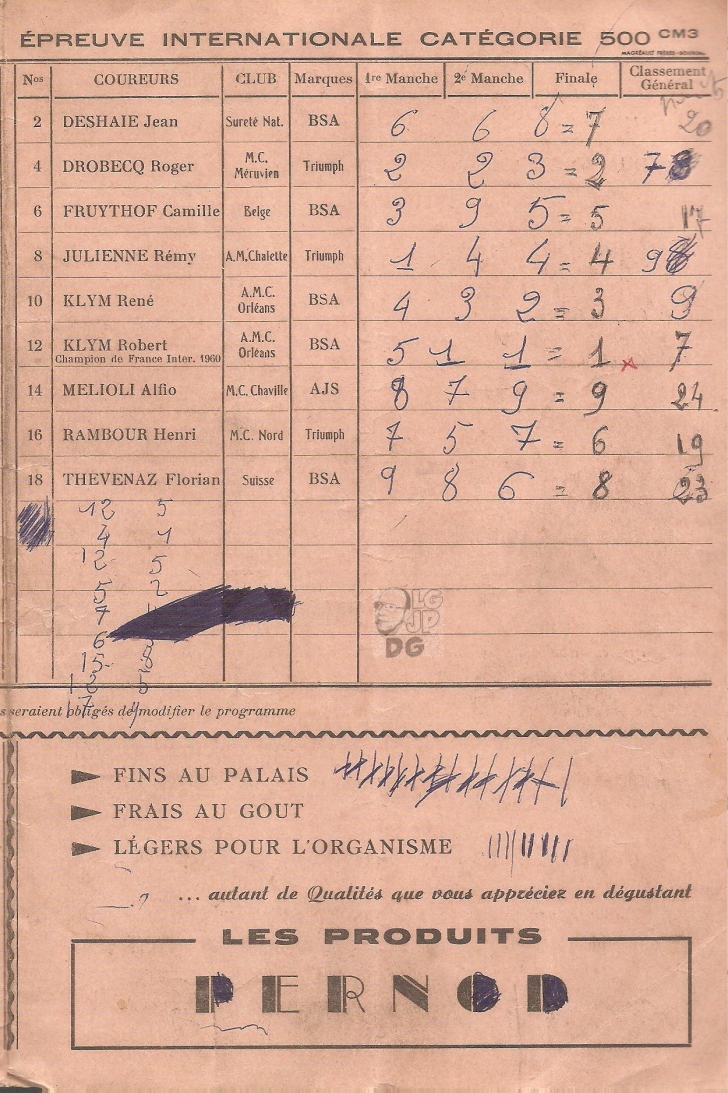 ÉPREUVE INTERNATIONALE CATÉGORIE 500 CM3
Nos COUREURS CLUB Marques 1re Manche 2e Manche Finale Classement Général
2 DESHAIE Jean Sureté Nat. BSA 6 6 8 = 7 20
4 DROBECQ Roger M.C. Méruvien Triumph 2 2 3 = 2 7
6 FRUYTHOF Camille Belge BSA 3 9 5 = 5 17
8 JULIENNE Rémy A.M.Chalette Triumph 1 4 4 = 4 9
10 KLYM René A.M.C. Orléans BSA 4 3 2 = 3 9
12 KLYM Robert A.M.C. Orléans BSA 5 1 1 = 1 x 7
Champion de France Inter. 1960
14 MELIOLI Alfio M.C. Chaville AJS 8 7 9 = 9 24
16 RAMBOUR Henri M.C. Nord Triumph 7 5 7 = 6 19
18 THEVENAZ Florian Suisse BSA 9 8 6 = 8 23
12 5
4 1
12 5
5 2
7
6
15
LG
JP
DG
seraient obligés de modifier le programme
FINS AU PALAIS
FRAIS AU GOUT
LÉGERS POUR L'ORGANISME
... autant de Qualités que vous appréciez en dégustant
LES PRODUITS
PERNOD